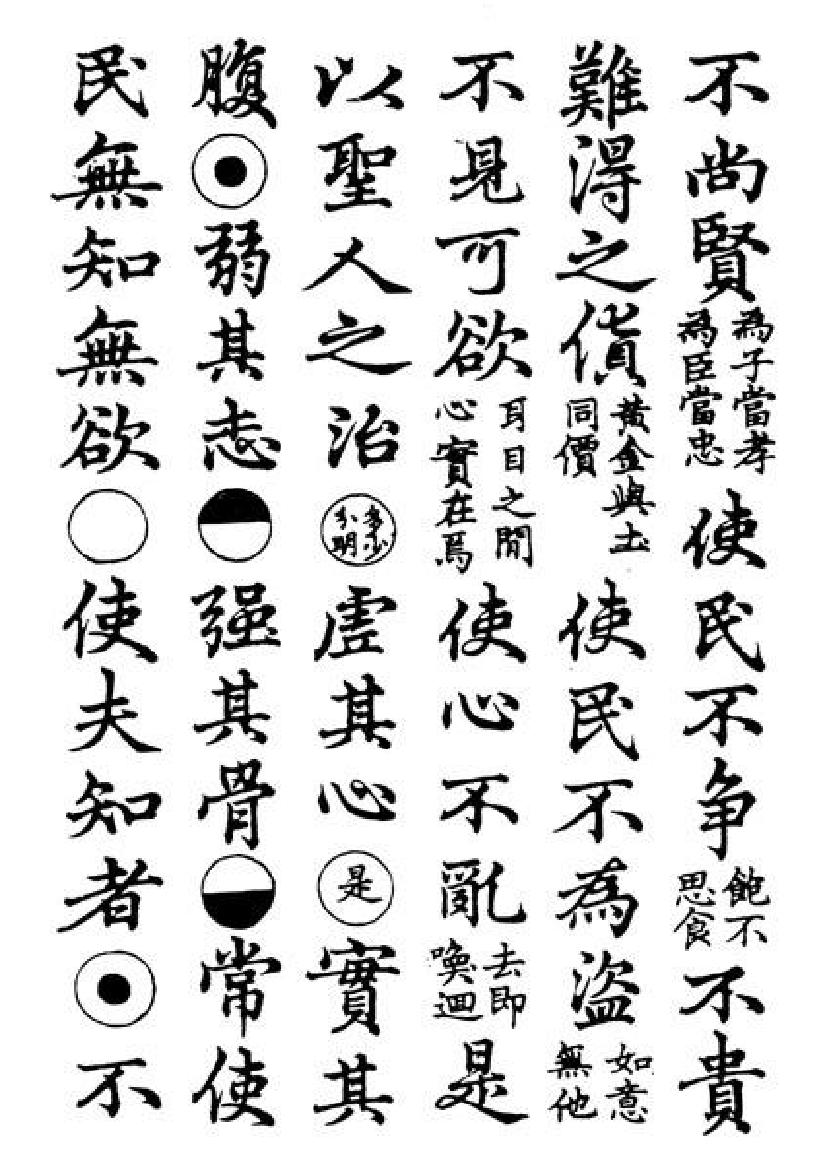 不尚賢為子當孝為臣當忠使民不争飽不思食不貴
難得之貨黃金與土同價使民不為盜如意無他
不見可欲耳目之間心實在焉使心不亂去即喚迴是
以聖人之治多少分明虛其心是實其
腹弱其志强其骨常使
民無知無欲使夫知者不